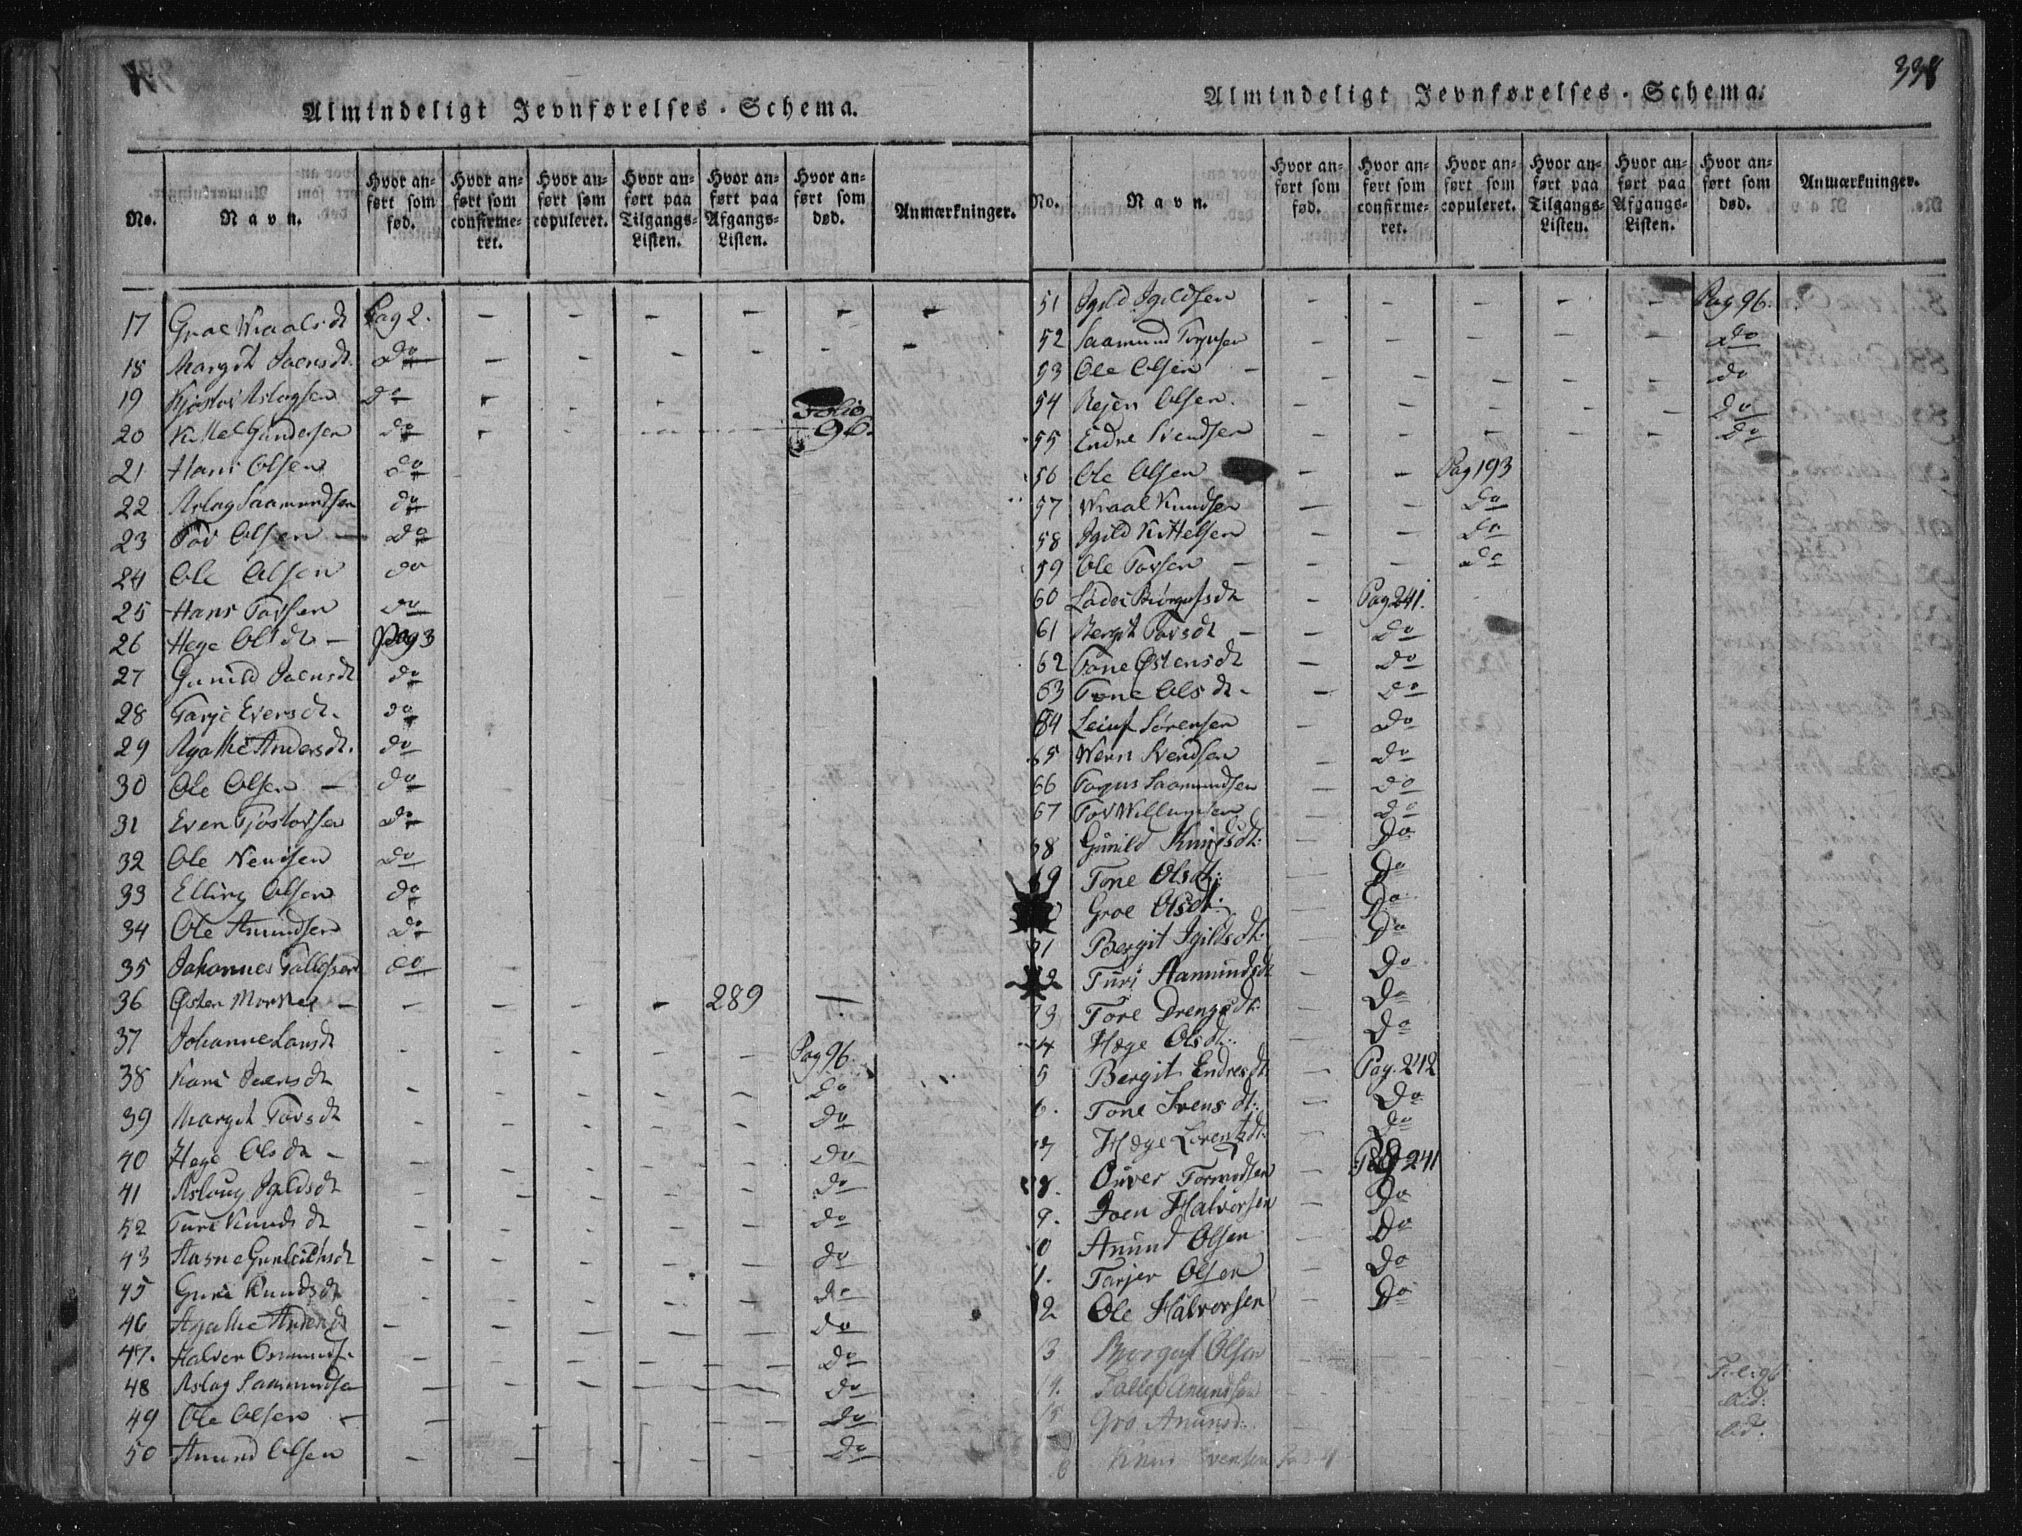 Almindeligt Jevnførelses-Schema.
No.
Navn.
Hvor anført som fød.
Hvor anført som confirmeret.
Hvor anført som copuleret.
Hvor anført paa Tilgangs-Listen.
Hvor anført paa Afgangs-Listen.
Hvor anført som død.
Anmærkninger.
17 Groe Wraalsdt Pag 2. - - - - - -
18 Margit Joensdt. Do - - - - - -
19 Kjøstov Aslagsen Do - - - Folio
20 Kittel Gundersen do - - - 96.
21 Hans Olsen do
22 Aslag Saamundsen do
23 Tov Olsen - do
24 Ole Olsen do
25 Hans Tovsen do
26 Hege Olsdt - Pag 3
27 Gunild Joensdt do
28 Tarje Eversdt. do
29 Agathe Andersdt. do
30 Ole Olsen - do
31 Even Tjøstovsen do
32 Ole Nemsen do
33 Elling Olsen do
34 Ole Amundsen do
35 Johannes Tollefsen do
36 Østen - - - - - 289 -
37 Johanne Larsdt - - - - - Pag 96.
38 Kari Joensdt - - - - - do
39 Margit Tovsdt - - - - - do
40 Hege Olsdt - - - - - - do
41 Aslaug Igildsdt - - - - - do
52 Turi Knudsdt - - - - - do
43 Aasne Gunleichsdt - - - - - do
45 Guri Knudsdt - - - - - do
46 Agathe Andersdt - - - - - do
47. Halvor Osmunds. - - - - - do
48 Aslag Saamundsen - - - - - do
49 Ole Olsen - - - - - - do
50 Amund Olsen - - - - - do
338
Almindeligt Jevnførelses-Schema.
No.
Navn.
Hvor anført som fød.
Hvor anført som confirmeret.
Hvor anført som copuleret.
Hvor anført paa Tilgangs-Listen.
Hvor anført paa Afgangs-Listen.
Hvor anført som død.
Anmærkninger.
51 Igild Igildsen - - - - - Pag 96.
52 Saamund - - - - - do
53 Ole Olsen - - - - - - do
54 Rejer Olsen. - - - - - do
55 Endre Svendsen - - - - - do
56 Ole Olsen - - Pag 193
57 Wraal Knudsen - - do
58 Igild Kittelsen - - do
59 Ole Tovsen - - - do
60 Ladei Biørgufsdt - Pag 241.
61 Bergit Tovsdt - - do
62 Tone Østensdt - do
63 Tone Olsdt - - do
84 Leiuf Sørensen - do
65 Wern Svendsen - do
66 Torgus Saamundsen - do
67 Tov Willumsen - do
68 Gunild Knudsdt: - Do
69 Tone Olsdt: - Do
Groe Olsdt: - Do
71 Bergit Igildsdt: - Do
2 Turi Aamundsdt - Do
73 Tore Drengsdt: - Do
4 Hæge Olsdt: - Do
5 Bergit Endresdt - Pag. 242
6. Tone Svensdt: - Do
7 Hæge Lorentzdt: - Do
8. Oliver Tormodsen - Pag 241
9. Joen Halvorsen - Do
0 Anund Olsen - Do
1. Tarjer Olsen - Do
2 Ole Halvorsen - Do
3 Bjørguf Olsen - - - - - Fol: 96
14. Tollef Anundsen - - - - - do:
15 Gro Anunsd: - - - - - do.
6 Knud Evensen